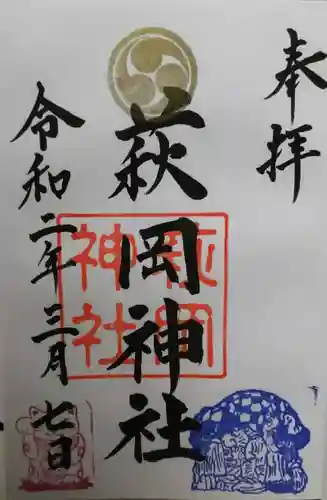 奉拝
萩岡神社
萩岡神社
令和二年三月七日